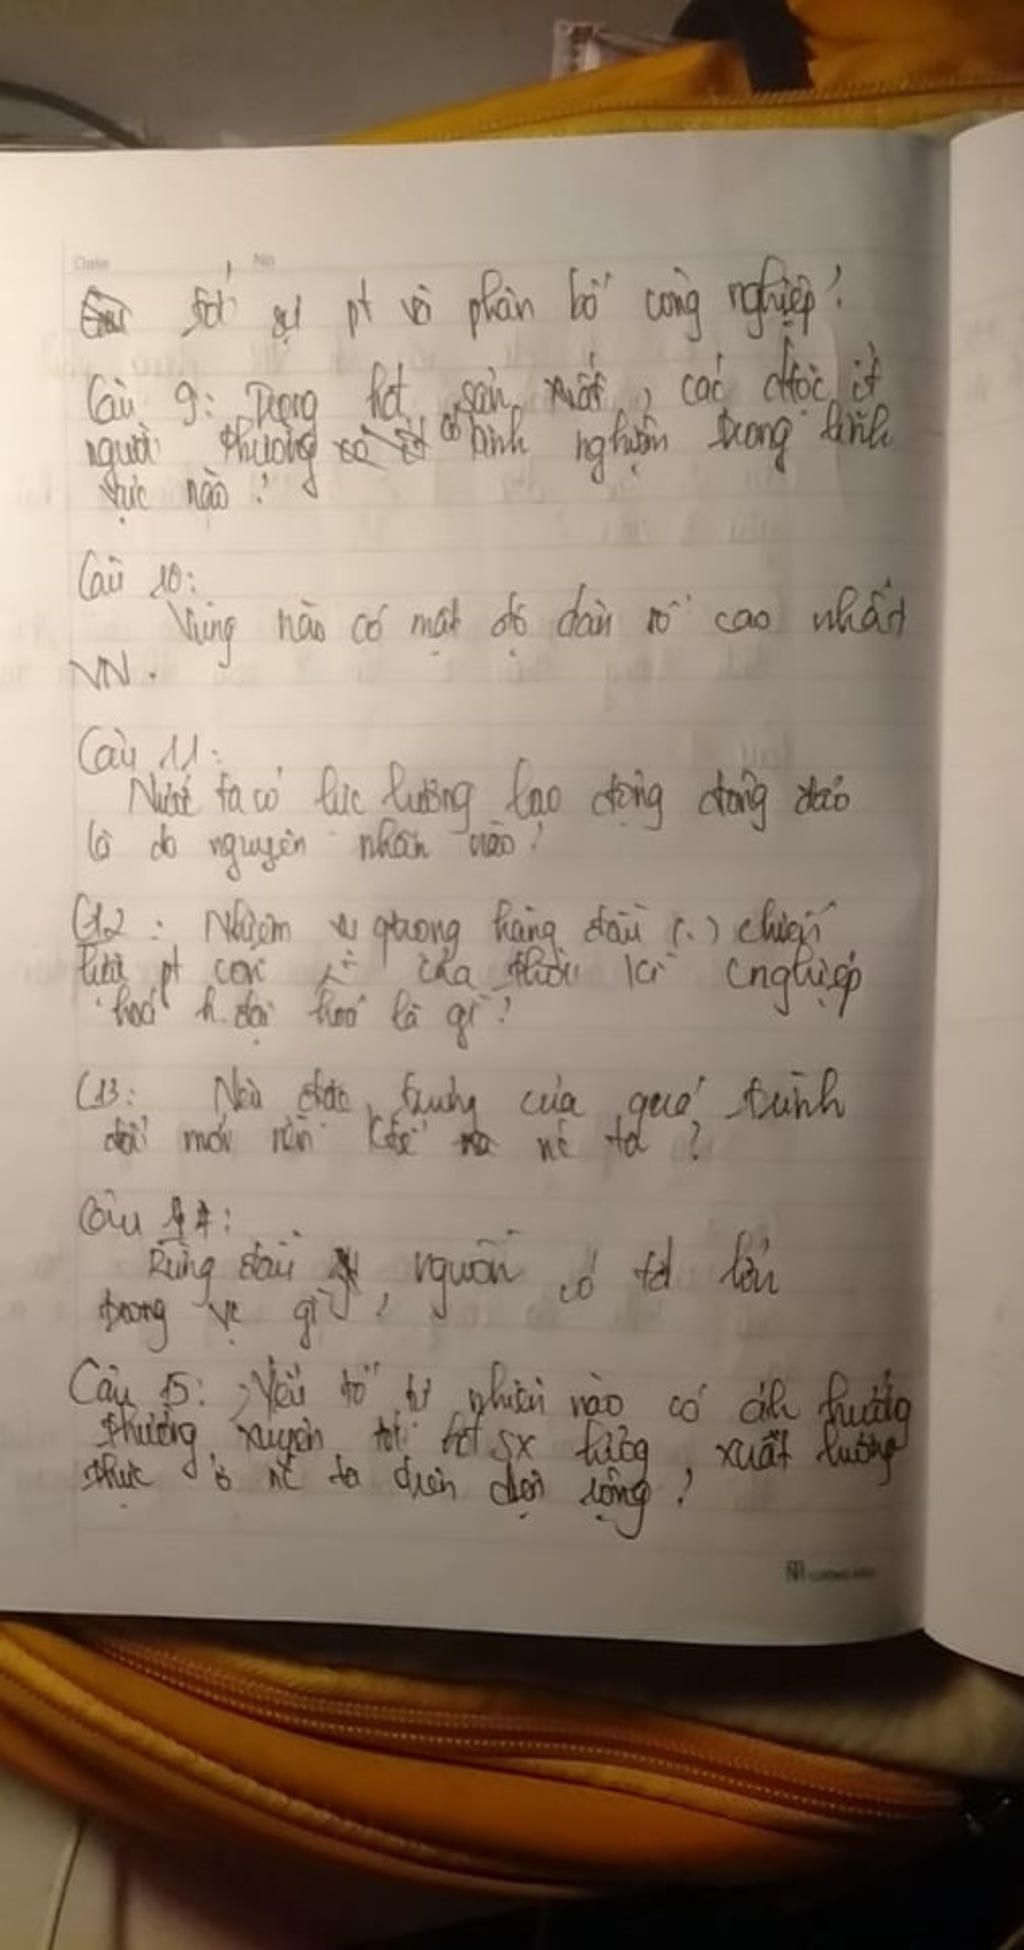 Date No
tới sự pt và phân bố công nghiệp?
Câu 9: Trong hđ sản xuất, các dtộc ít
người thường có kinh nghiệm trong lĩnh
vực nào?
Câu 10:
Vùng nào có mật độ dân số cao nhất
VN.
Câu 11:
Nước ta có lực lượng lao động đông đảo
là do nguyên nhân nào?
C12: Nhiệm vụ qtrọng hàng đầu (.) chiến
lược pt con của thời kì cnghiệp
hoá h.đại hoá là gì?
C13: Nêu đặc trưng của quá trình
đổi mới nền ktế nc ta?
Câu 14:
Rừng đầu nguồn có td lớn
trong vc gì?
Câu 15: Yếu tố tự nhiên nào có ảh hưởng
thường xuyên tới hđ sx lương xuất lương
thực ở nc ta trên diện rộng?